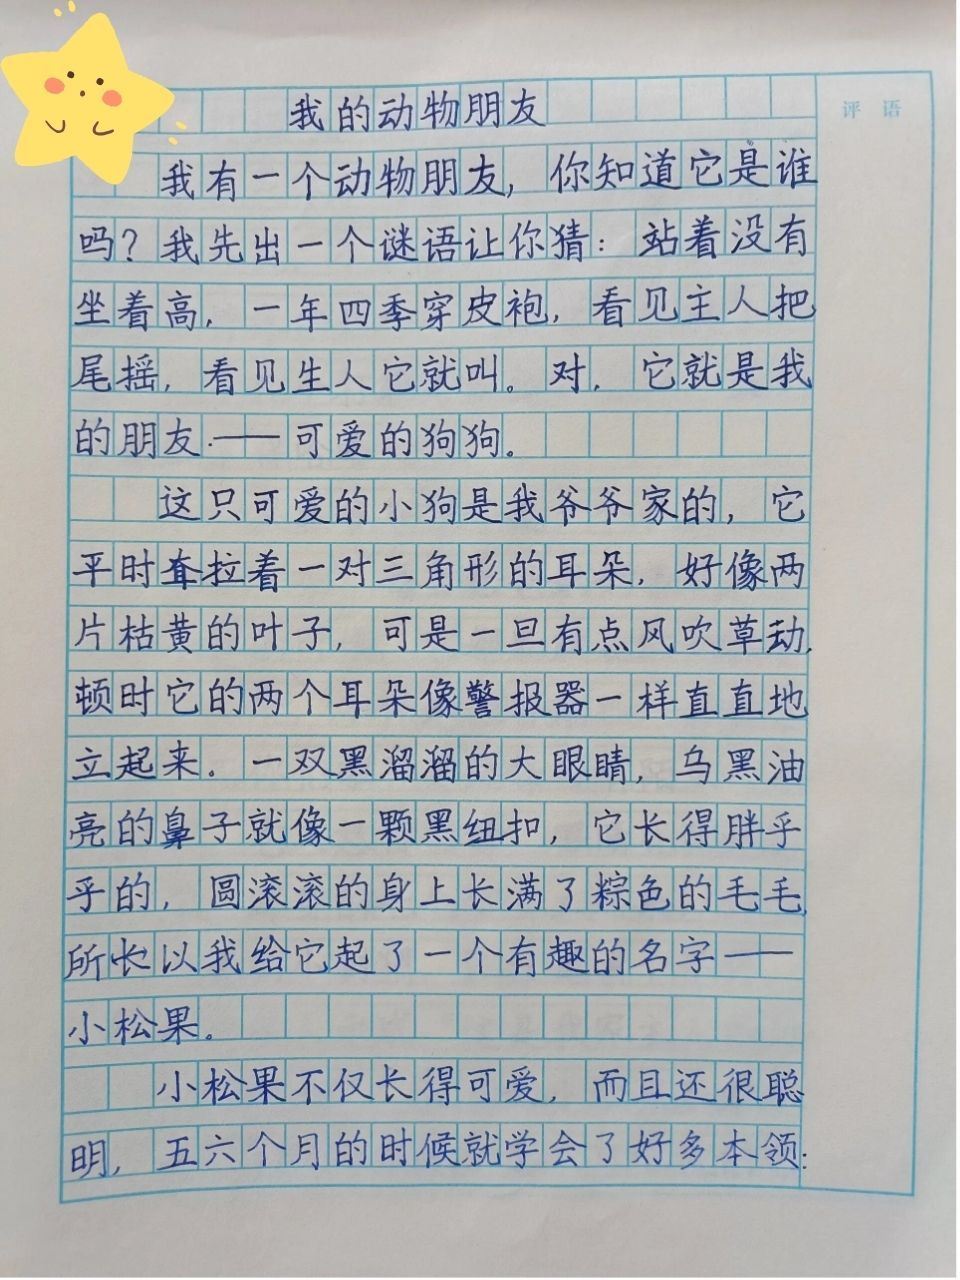 评 语
我的动物朋友
我有一个动物朋友，你知道它是谁
吗？我先出一个谜语让你猜：站着没有
坐着高，一年四季穿皮袍，看见主人把
尾摇，看见生人它就叫。对，它就是我
的朋友——可爱的狗狗。
这只可爱的小狗是我爷爷家的，它
平时耷拉着一对三角形的耳朵，好像两
片枯黄的叶子，可是一旦有点风吹草动，
顿时它的两个耳朵像警报器一样直直地
立起来。一双黑溜溜的大眼睛，乌黑油
亮的鼻子就像一颗黑纽扣，它长得胖乎
乎的，圆滚滚的身上长满了粽色的毛毛，
所以我给它起了一个有趣的名字——
小松果。
小松果不仅长得可爱，而且还很聪
明，五六个月的时候就学会了好多本领：